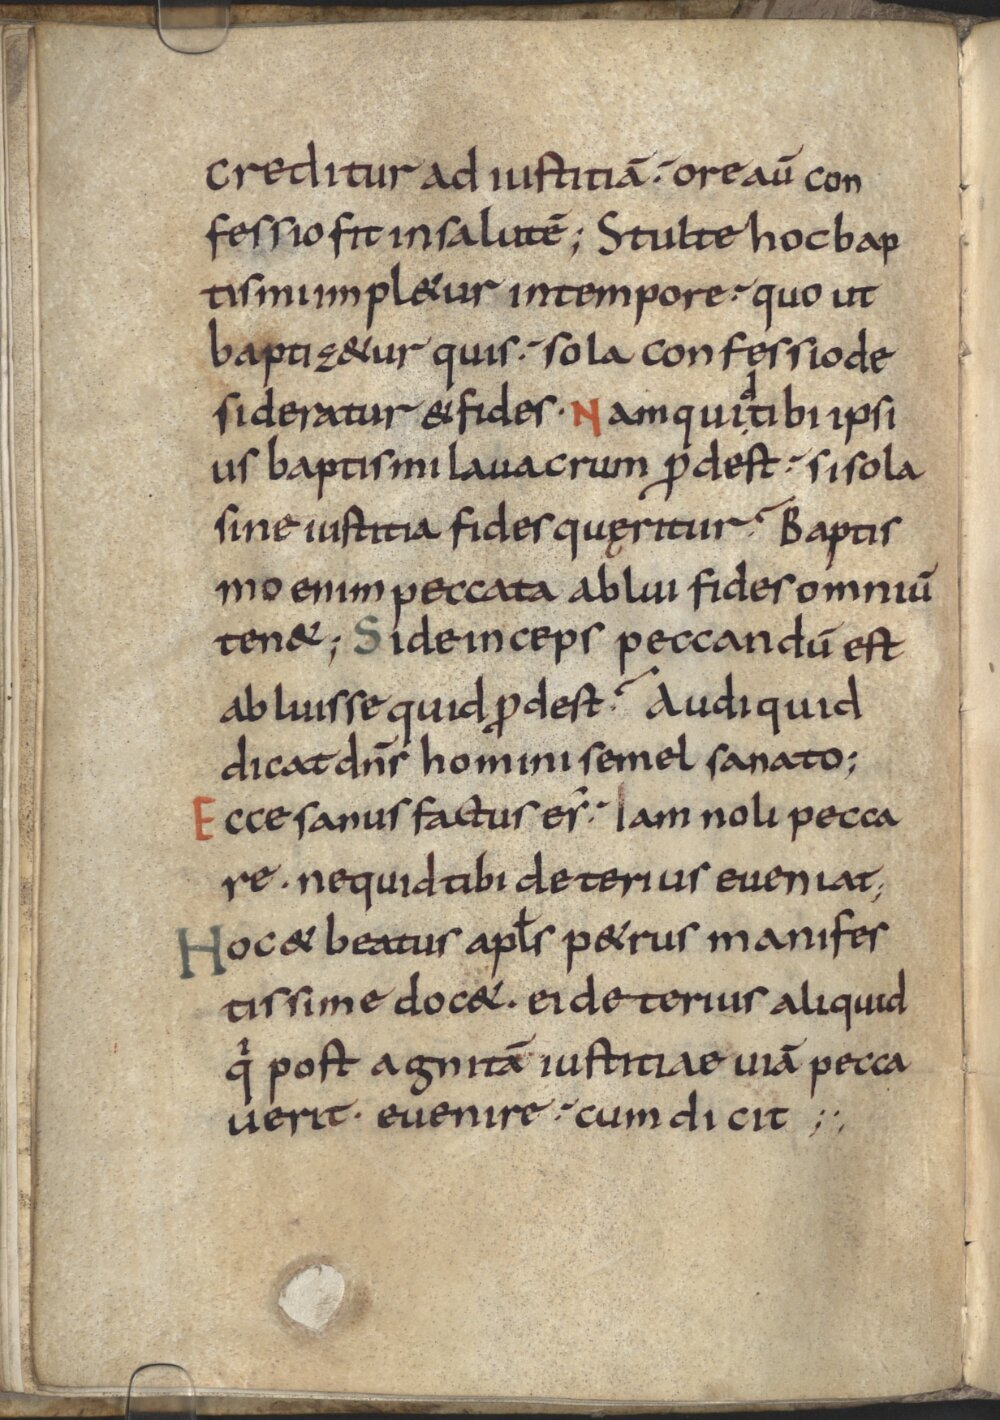 creditur ad iustitiā. ore aū con
fessio fit in salutē; Stulte hoc bap
tismi impl&ur in tempore. quo ut
baptiz&ur quis. sola confessio de
sideratur & fides. Nam quid tibi ipsi
us baptismi lauacrum ꝓdest. si sola
sine iustitia fides quęritur? Baptis
mo enim peccata ablui fides omniū
ten&; Si deinceps peccandū est
abluisse quid ꝓdest? Audi quid
dicat dn̄s homini semel sanato;
Ecce sanus factus es. Iam noli pecca
re. nequid tibi deterius eueniat;
Hoc & beatus apłs p&rus manifes
tissime doc&. ei deterius aliquid
qͥ post agnitā iustitiae uiā pecca
uerit. euenire. cum dicit ;;